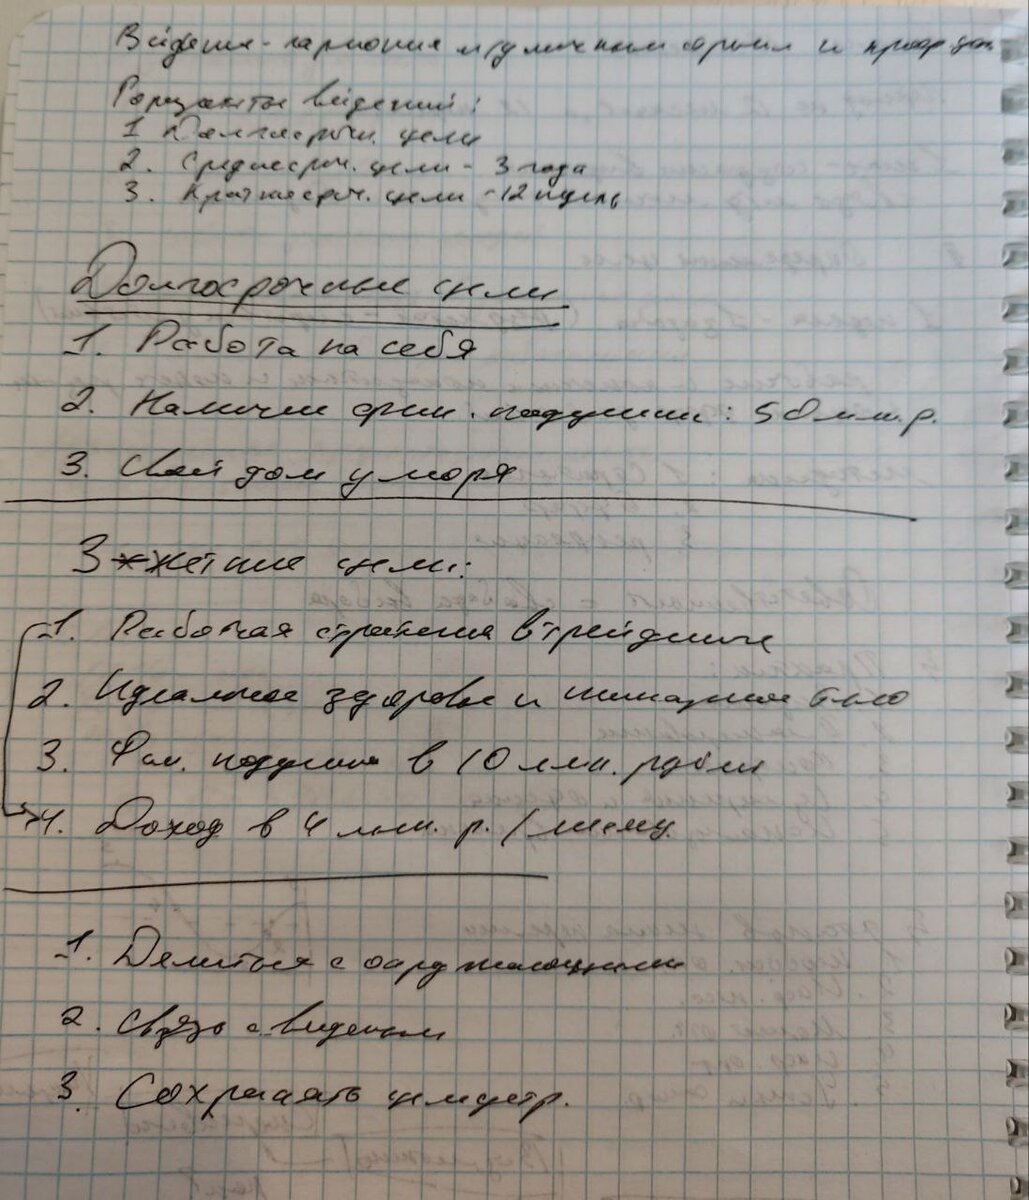 Видение - гармония м/у личным и проф.
Горизонты видений:
1 Долгосрочн. цели
2. Среднесроч. цели - 3 года
3. Краткосроч. цели - 12 недель
Долгосрочные цели
1. Работа на себя
2. Наличие фин. подушки: 50 млн.р.
3. Свой дом у моря
3-хлетние цели:
1. Рабочая стратегия в трейдинге
2. Идеальное здоровье и шикарное тело
3. Фин. подушка в 10 млн. рубли
4. Доход в 4 млн. р. / месяц
1. Делиться с окружающими
2. Связь с видением
3. Сохранять